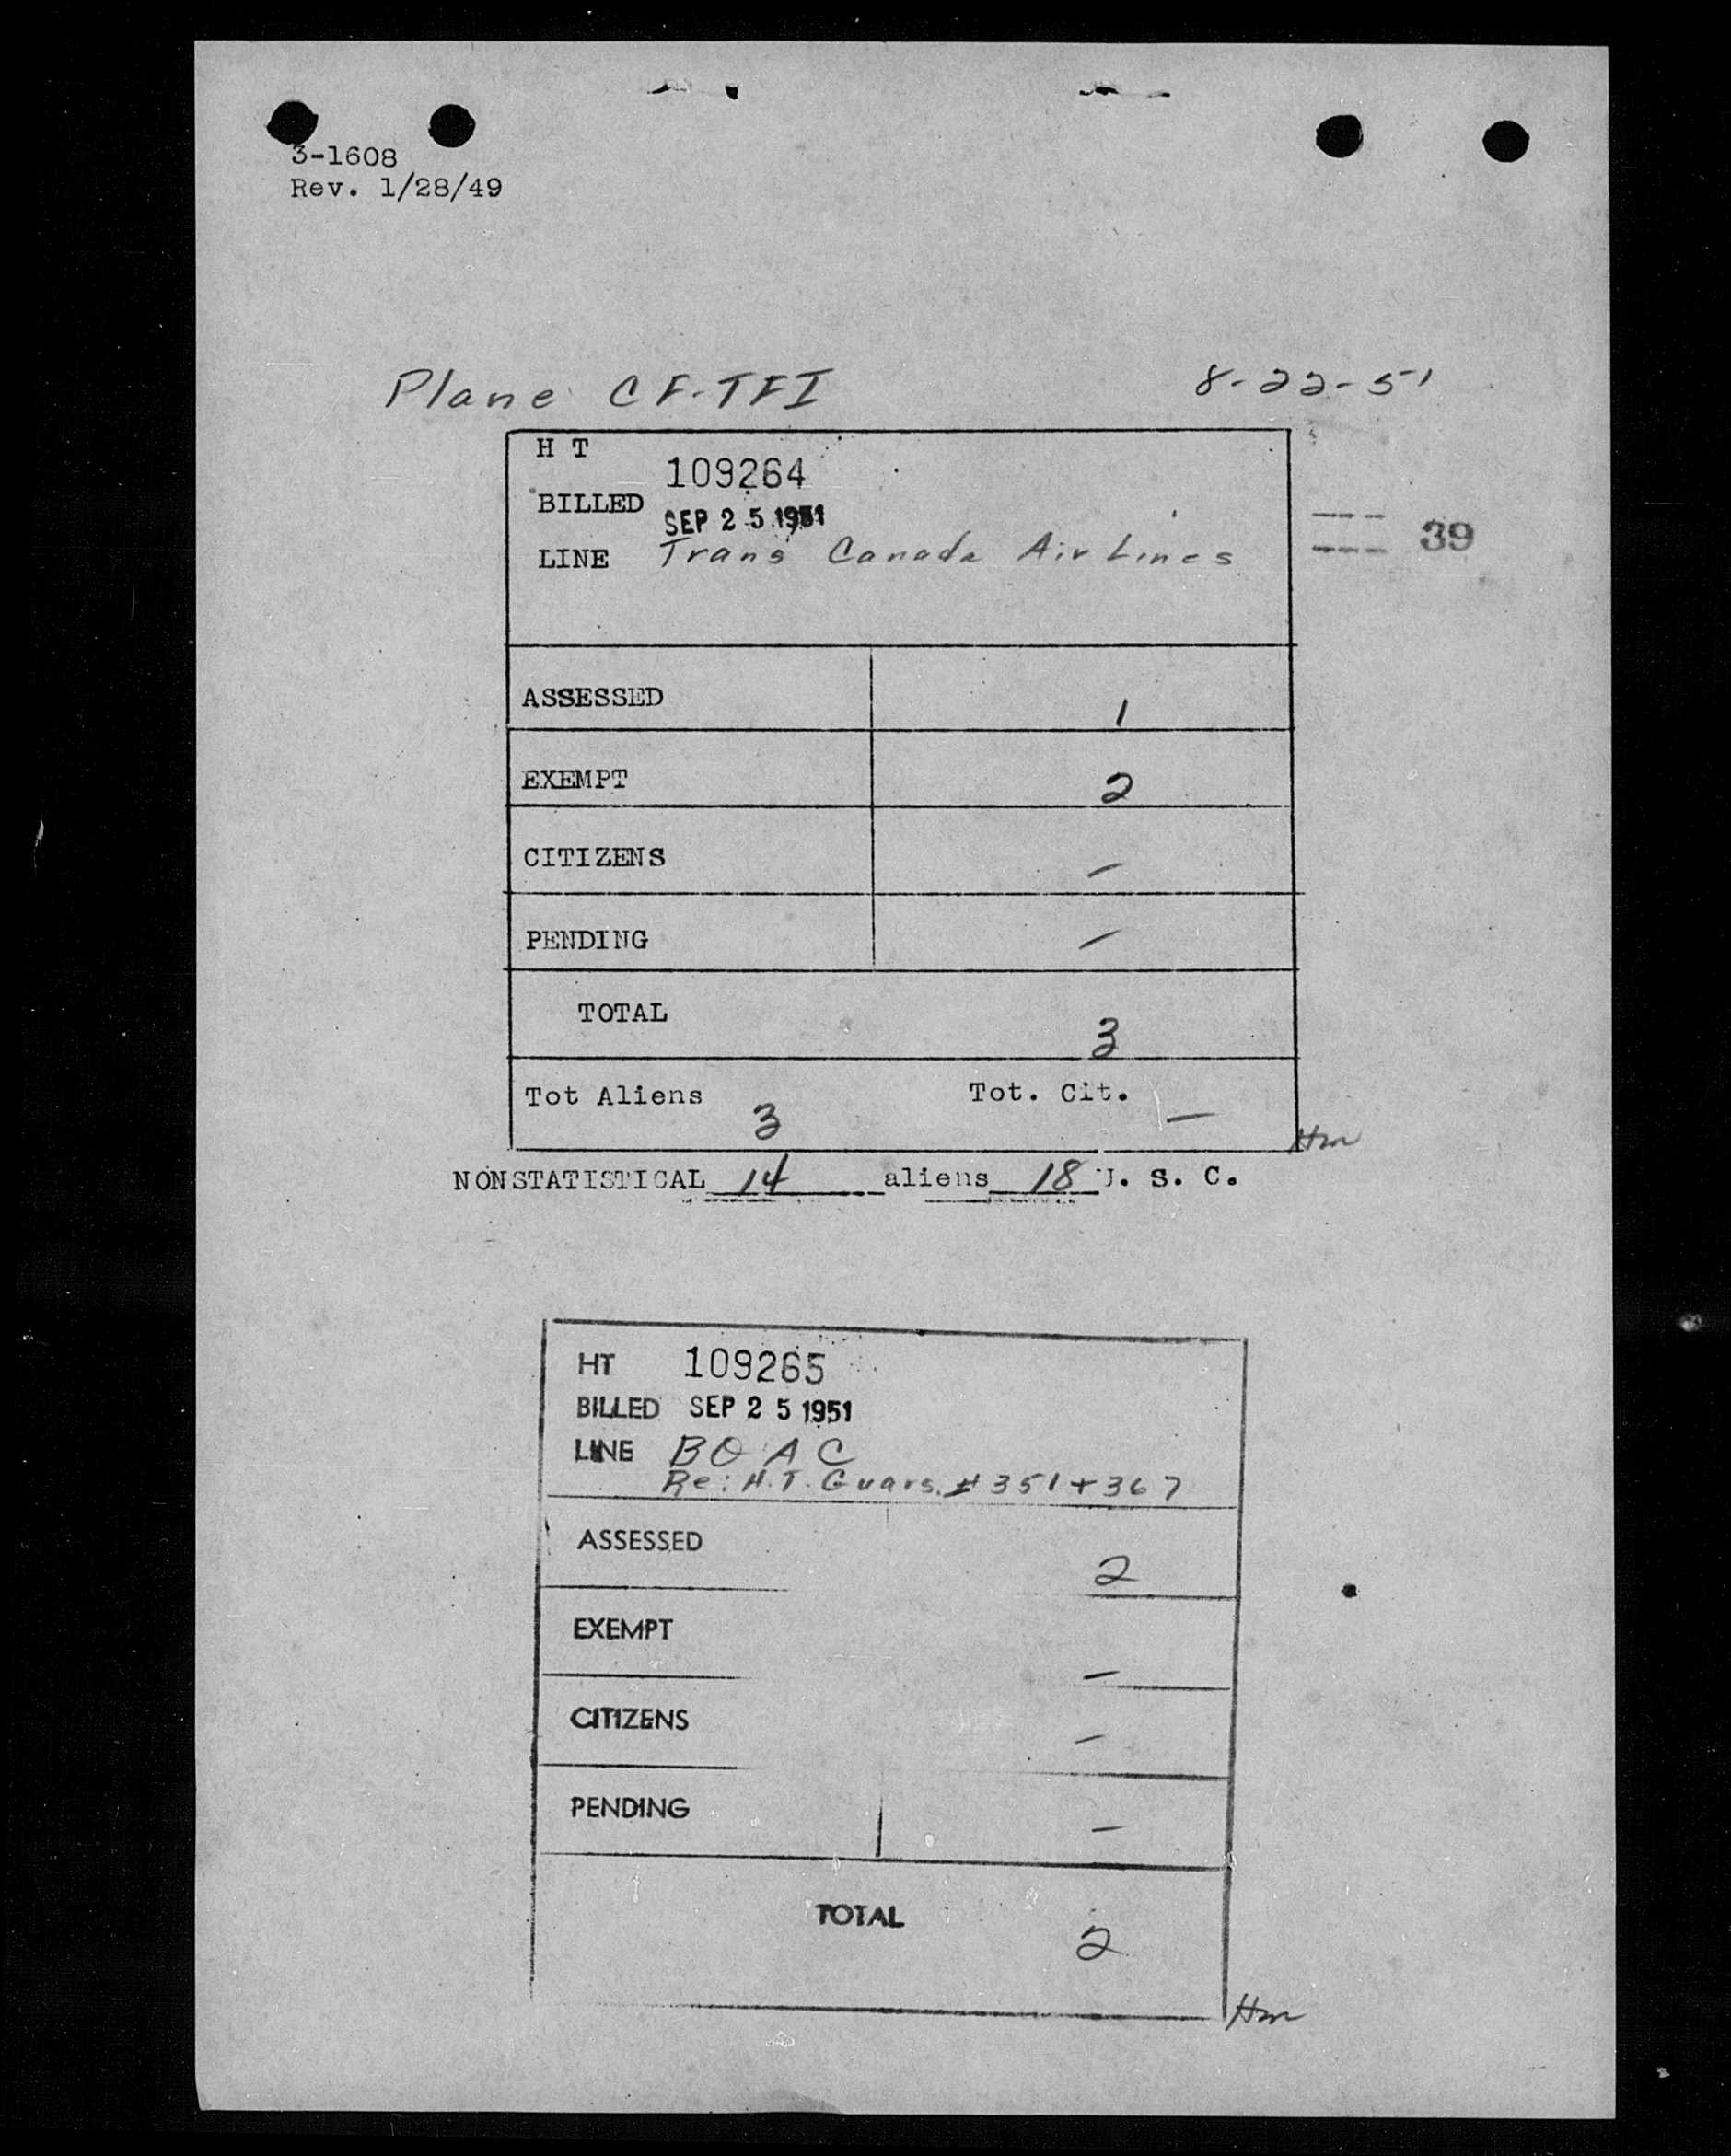 3-1608
Rev. 1/28/49
Plane CF-TFI 8-22-51
H T 109264
BILLED SEP 25 1951
LINE Trans Canada Air Lines
39
ASSESSED 1
EXEMPT 2
CITIZENS —
PENDING —
TOTAL 3
Tot Aliens 3 Tot. Cit. —
Hm
NONSTATISTICAL 14 aliens 18 U. S. C.
HT 109265
BILLED SEP 25 1951
LINE BOAC
Re: H.T. Guars. # 351 + 367
ASSESSED 2
EXEMPT —
CITIZENS —
PENDING —
TOTAL 2
Hm